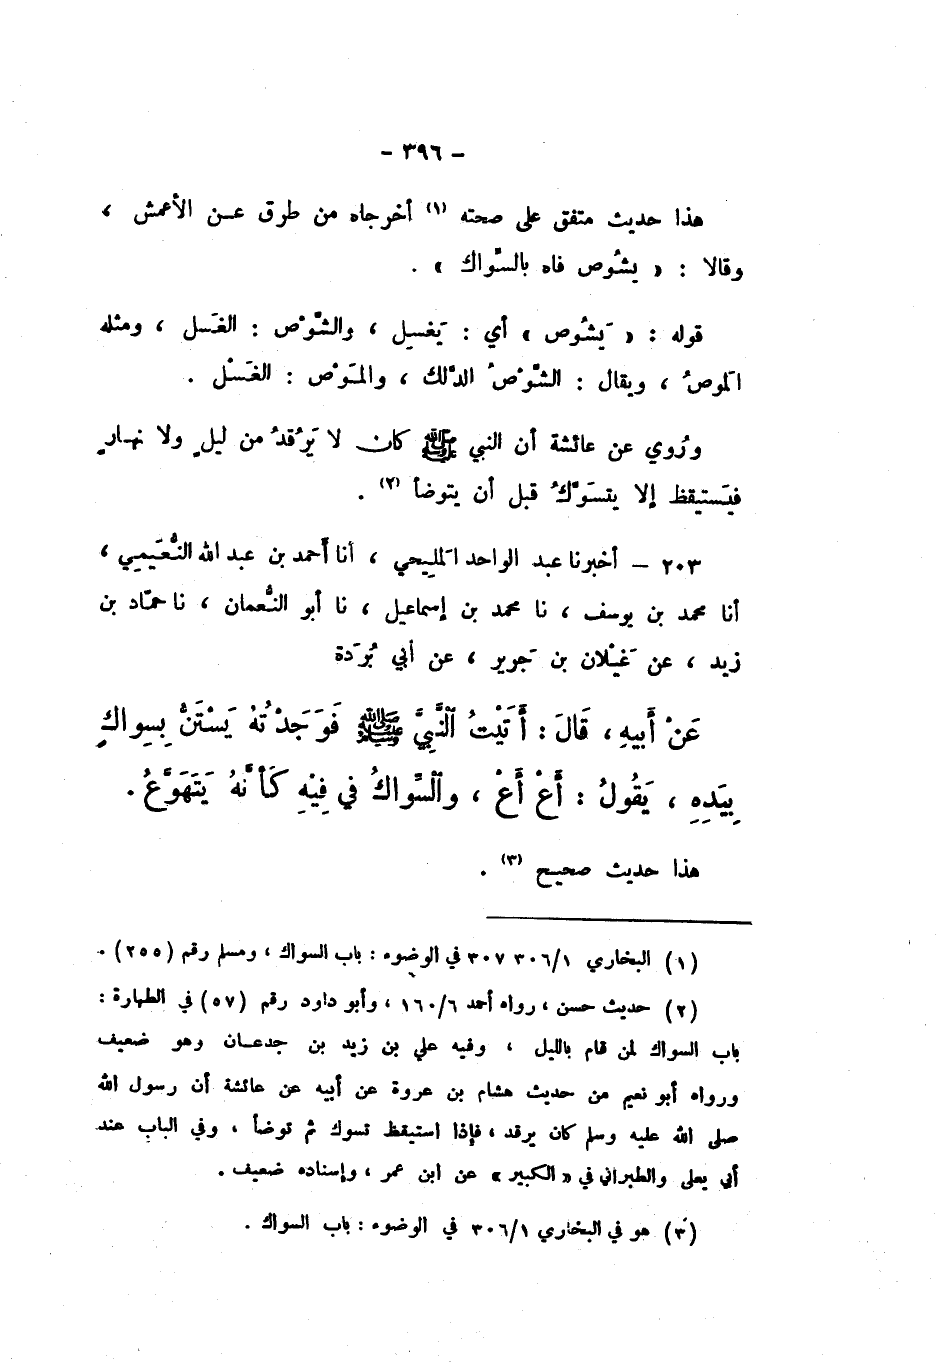 - ٣٩٦ -
هذا حديث متفق على صحته (١) أخرجاه من طرق عن الأعمش ،
وقالا : « يشُوص فاه بالسِّواك » .
قوله : « يَشُوص » أي : يَغسِل ، والشَّوْص : الغَسل ، ومثله
الَموصُ ، ويقال : الشَّوْصُ الدَّلك ، والمَوْص : الغَسْل .
ورُوي عن عائشة أن النبي ﷺ كان لا يَرْقُدُ من ليلٍ ولا نهارٍ
فيَستيقظ إلا يتسَوَّكُ قبل أن يتوضأ (٢) .
٢٠٣ – أخبرنا عبد الواحد الَمليحي ، أنا أحمد بن عبد الله النُّعَيمي ،
أنا محمد بن يوسف ، نا محمد بن إسماعيل ، نا أبو النُّعمان ، نا حمّاد بن
زيد ، عن غَيْلان بن جَرير ، عن أبي بُرَدة
عَنْ أَبيهِ ، قَالَ : أَتَيْتُ ٱلنَّبِيَّ ﷺ فَوَجَدْتُهُ يَسْتَنُّ بِسِواكٍ
بِيَدِهِ ، يَقُولُ : أُعْ أُعْ ، وٱلسِّواكُ في فِيْهِ كَأَنَّهُ يَتَهَوَّعُ .
هذا حديث صحيح (٣) .
(١) البخاري ٣٠٦/١ ٣٠٧ في الوضوء : باب السواك ، ومسلم رقم (٢٥٥) .
(٢) حديث حسن ، رواه أحمد ١٦٠/٦ ، وأبو داود رقم (٥٧) في الطهارة :
باب السواك لمن قام بالليل ، وفيه علي بن زيد بن جدعان وهو ضعيف
ورواه أبو نعيم من حديث هشام بن عروة عن أبيه عن عائشة أن رسول الله
صلى الله عليه وسلم كان يرقد ، فإذا استيقظ تسوك ثم توضأ ، وفي الباب عند
أبي يعلى والطبراني في « الكبير » عن ابن عمر ، وإسناده ضعيف .
(٣) هو في البخاري ٣٠٦/١ في الوضوء : باب السواك .